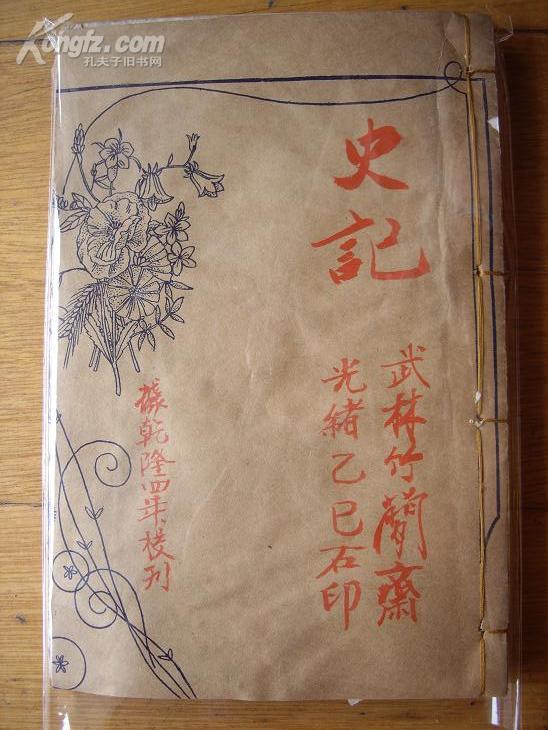 Kongfz.com
孔夫子旧书网
史記
武林竹簡齋
光緒乙巳石印
據乾隆四年校刊